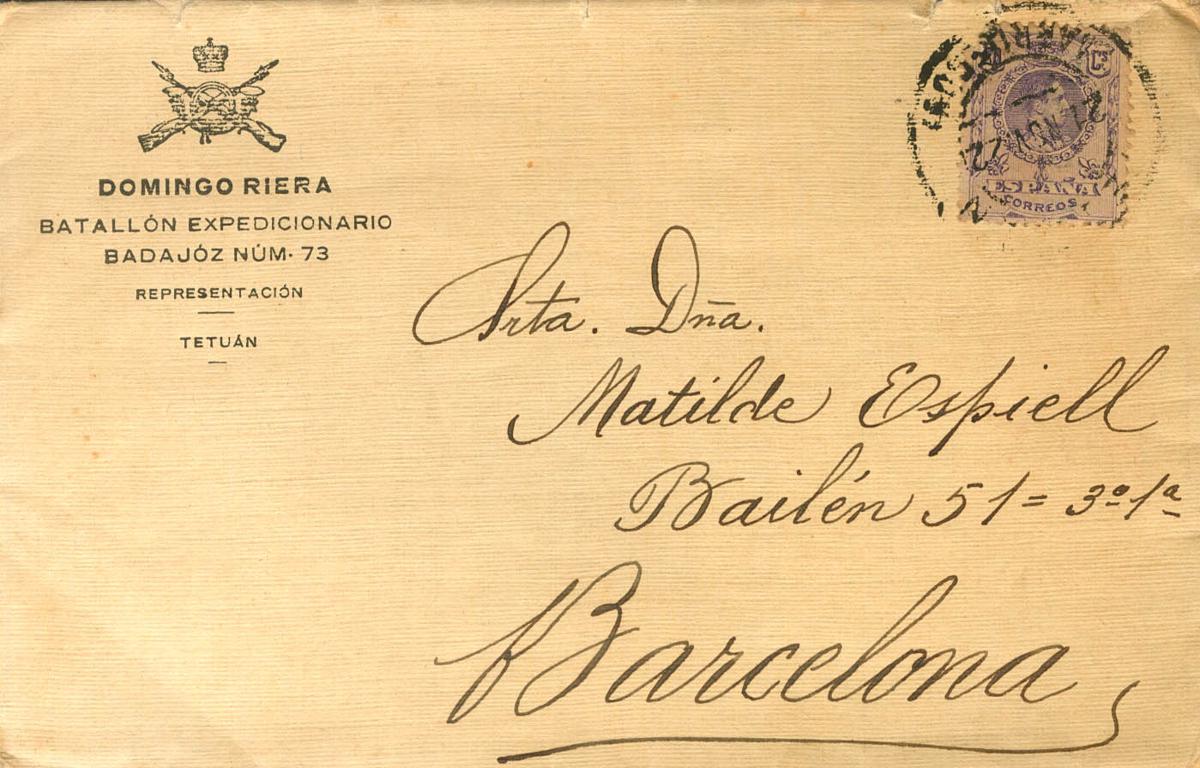 DOMINGO RIERA
BATALLÓN EXPEDICIONARIO
BADAJÓZ NÚM. 73
REPRESENTACIÓN
TETUÁN
Cs
ESPAÑA
CORREOS
21 NOV 22
Srta. Dña.
Matilde Espiell
Bailén 51 = 3º 1ª
Barcelona